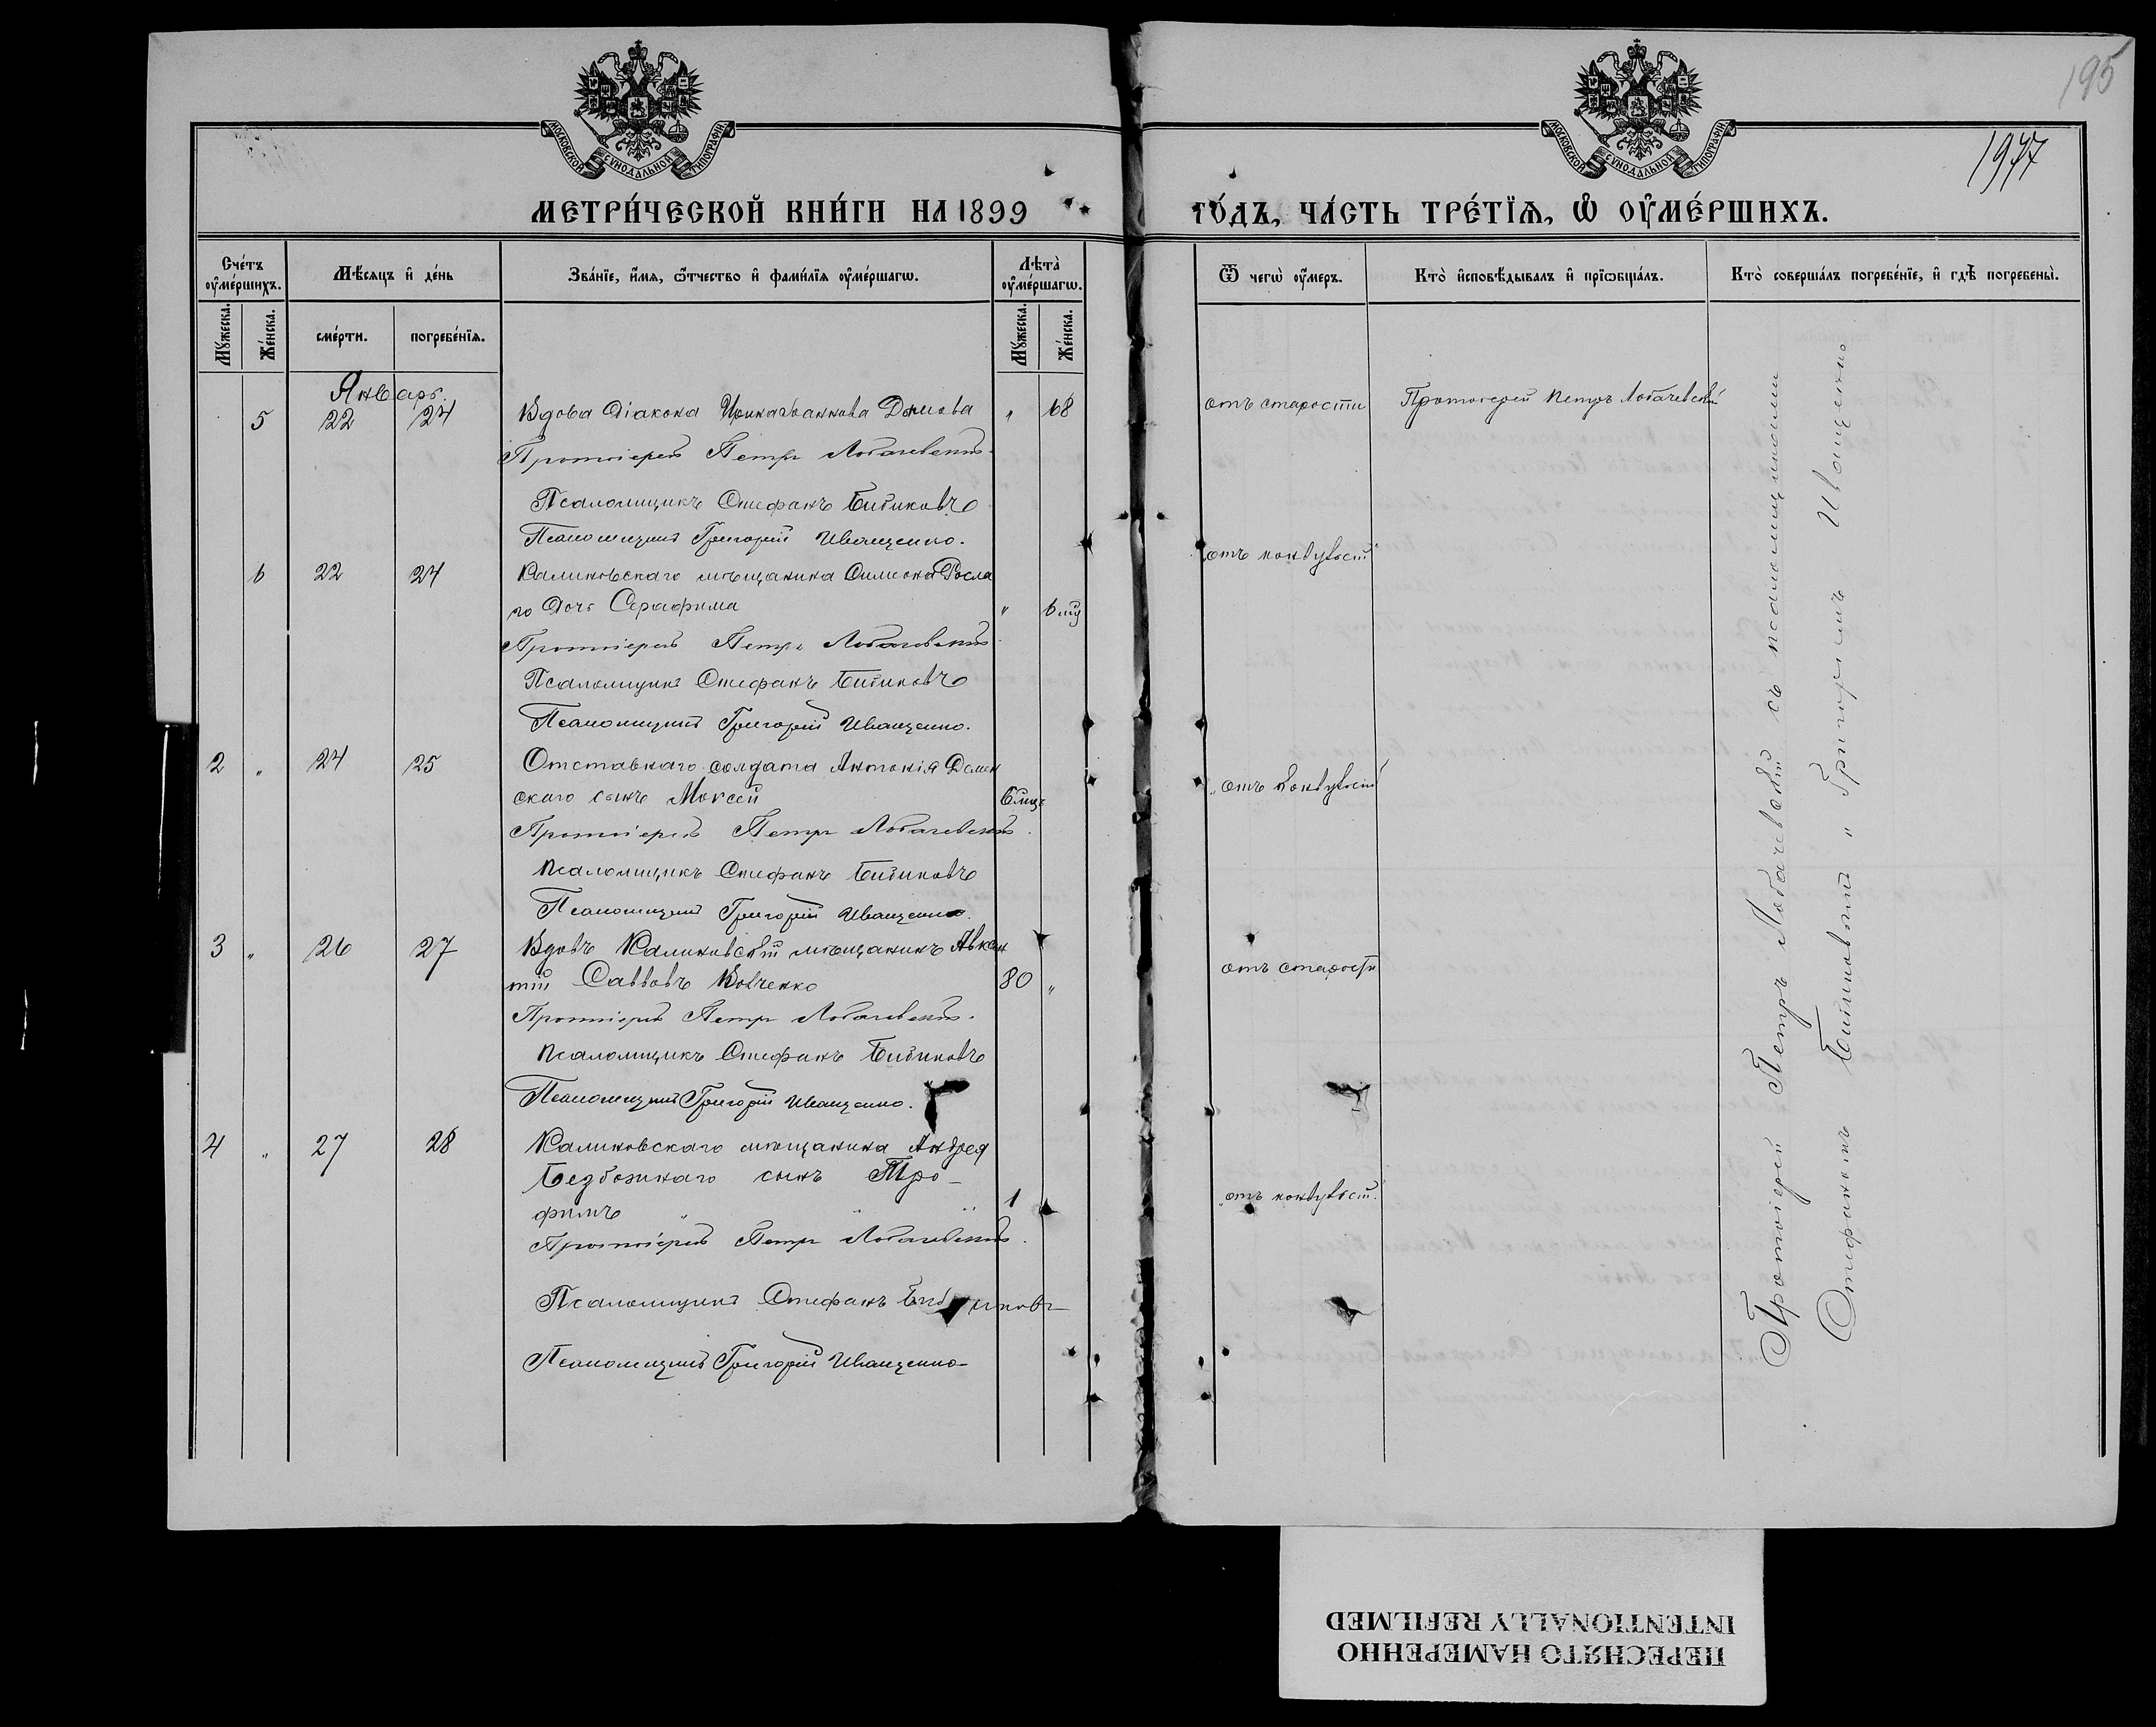 195
1977
МОСКОВСКОЙ СѴНОДАЛЬНОЙ ТИПОГРАФІИ
МОСКОВСКОЙ СѴНОДАЛЬНОЙ ТИПОГРАФІИ
МЕТРИ́ЧЕСКОЙ КНИ́ГИ НА 1899 ГО́ДЪ, ЧА́СТЬ ТРЕ́ТЇѦ, Ѡ҆ ОУ҆МЕ́РШИХЪ.
Сче́тъ оу҆ме́ршихъ.
Мꙋ́жеска.
Же́нска.
Мѣ́сяцъ и҆ де́нь
сме́рти.
погребе́нїѧ.
Зва́нїе, и҆́мѧ, ѻ҆́тчество и҆ фами́лїѧ оу҆ме́ршагѡ.
Лѣ́та оу҆ме́ршагѡ.
Мꙋ́жеска.
Же́нска.
Ѿ чегѡ̀ оу҆́меръ.
Кто̀ и҆сповѣ́дывалъ и҆ прїѡбща́лъ.
Кто̀ соверша́лъ погребе́нїе, и҆ гдѣ̀ погребены̀.
Январь.
5 22 24 Вдова Діакона Димова " 68 отъ старости Протоіерей Петръ Лобачевскій
Протоіерей Петръ Лобачевскій.
Псаломщикъ Стефанъ Бибиковъ
Псаломщикъ Григорій Иващенко.
6 22 24 Калиновскаго мѣщанина Симеона Росла
го дочь Серафима " 6 мц
Протоіерей Петръ Лобачевскій
Псаломщикъ Стефанъ Бибиковъ
Псаломщикъ Григорій Иващенко.
2 " 24 25 Отставнаго солдата Антонія Демен
скаго сынъ Моисей 6 мц.
Протоіерей Петръ Лобачевскій.
Псаломщикъ Стефанъ Бибиковъ
Псаломщикъ Григорій Иващенко.
3 " 26 27 Вдовъ Калиновскій мѣщанинъ
Савовъ Вовченко 80 " отъ старости
Протоіерей Петръ Лобачевскій.
Псаломщикъ Стефанъ Бибиковъ
Псаломщикъ Григорій Иващенко.
4 " 27 28 Калиновскаго мѣщанина Андрея
Безбожнаго сынъ Тро-
фимъ " " " 1
Протоіерей Петръ Лобачевскій.
Псаломщикъ Стефанъ Бибиковъ
Псаломщикъ Григорій Иващенко
Протоіерей Петръ Лобачевскій съ псаломщиками
Стефаномъ Бибиковымъ " Григоріемъ Иващенко
ПЕРЕСНЯТО НАМЕРЕННО
INTENTIONALLY REFILMED